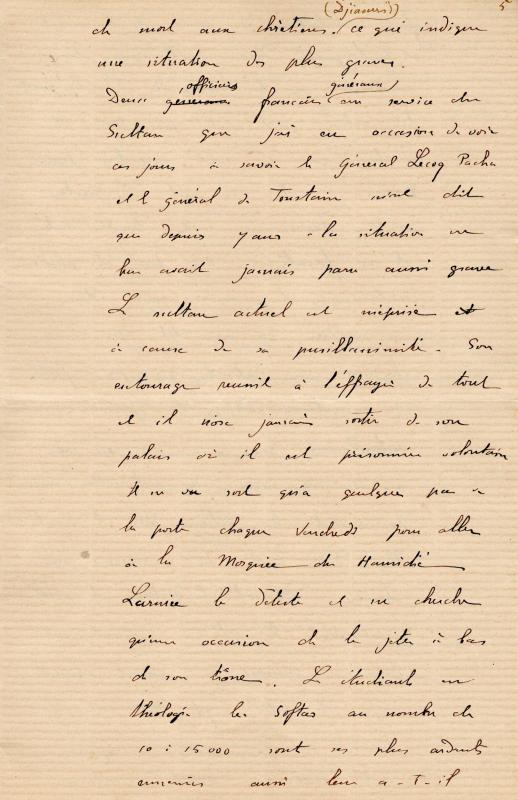 (Djiaours) 5
de mort aux chrétiens. ce qui indique
une situation des plus graves.
officiers généraux
Deux généraux français au service du
Sultan que j'ai eu occasion de voir
ces jours à savoir le Général Lecoq Pacha
et le général de Toustain m'ont dit
que depuis 7 ans la situation ne
leur avait jamais paru aussi grave
Le sultan actuel est méprisé et
à cause de sa pusillanimité. Son
entourage réussit à l'éffrayé de tout
et il n'ose jamais sortir de son
palais où il est prisonnier volontaire
Il ne sort qu'à quelques pas à
la porte chaque Vendredi pour aller
à la Mosquée du Hamidié
L'armée le déteste et ne cherche
qu'une occasion de le jeter à bas
de son trône. Les étudiants en
théologie les Softas au nombre de
10 à 15000 sont ses plus ardents
ennemis aussi leur a-t-il